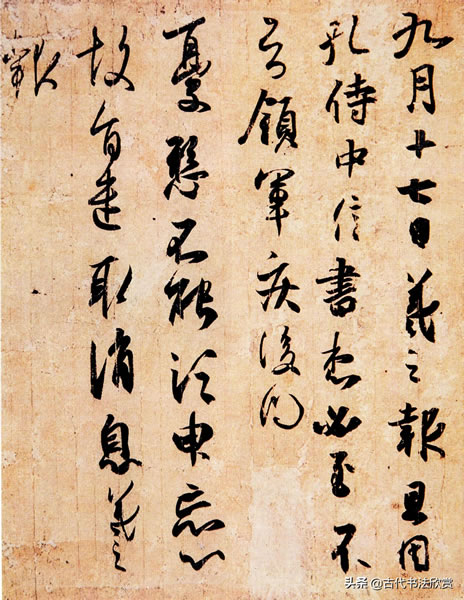 九月十七日羲之報且因
孔侍中信書想必至不
知領軍疾後問
憂懸不能須臾忘心
故旨遣取消息羲之
報
头条 @古代书法欣赏